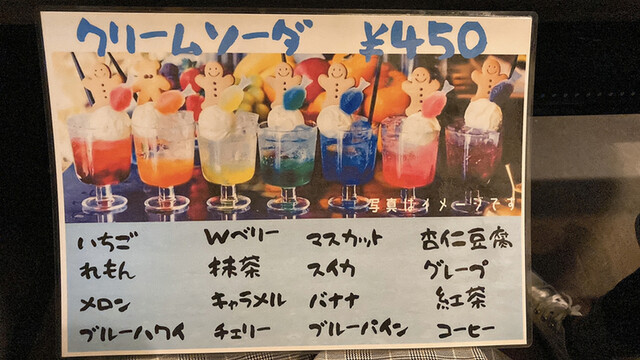 クリームソーダ ¥450
写真はイメージです
いちご Wベリー マスカット 杏仁豆腐
れもん 抹茶 スイカ グレープ
メロン キャラメル バナナ 紅茶
ブルーハワイ チェリー ブルーパイン コーヒー